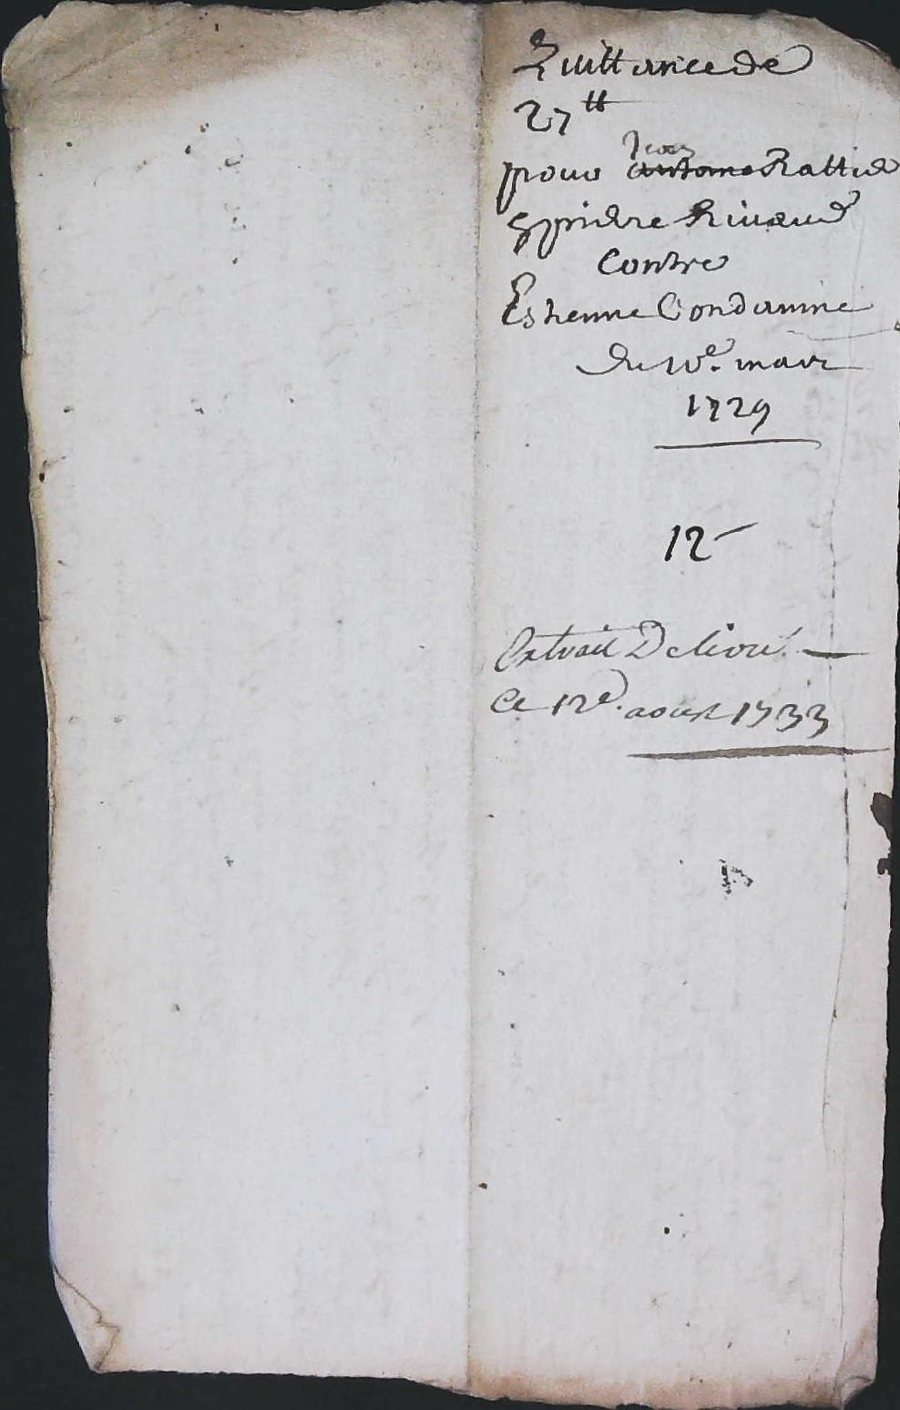 Quittance de
27 ₶
Jean
pour Antoine Rattie
& pierre Rivaud
Contre
Estienne Condamine
du 10e. mars
1729
12
Extrait Delivré
Ce 12e. aoust 1733